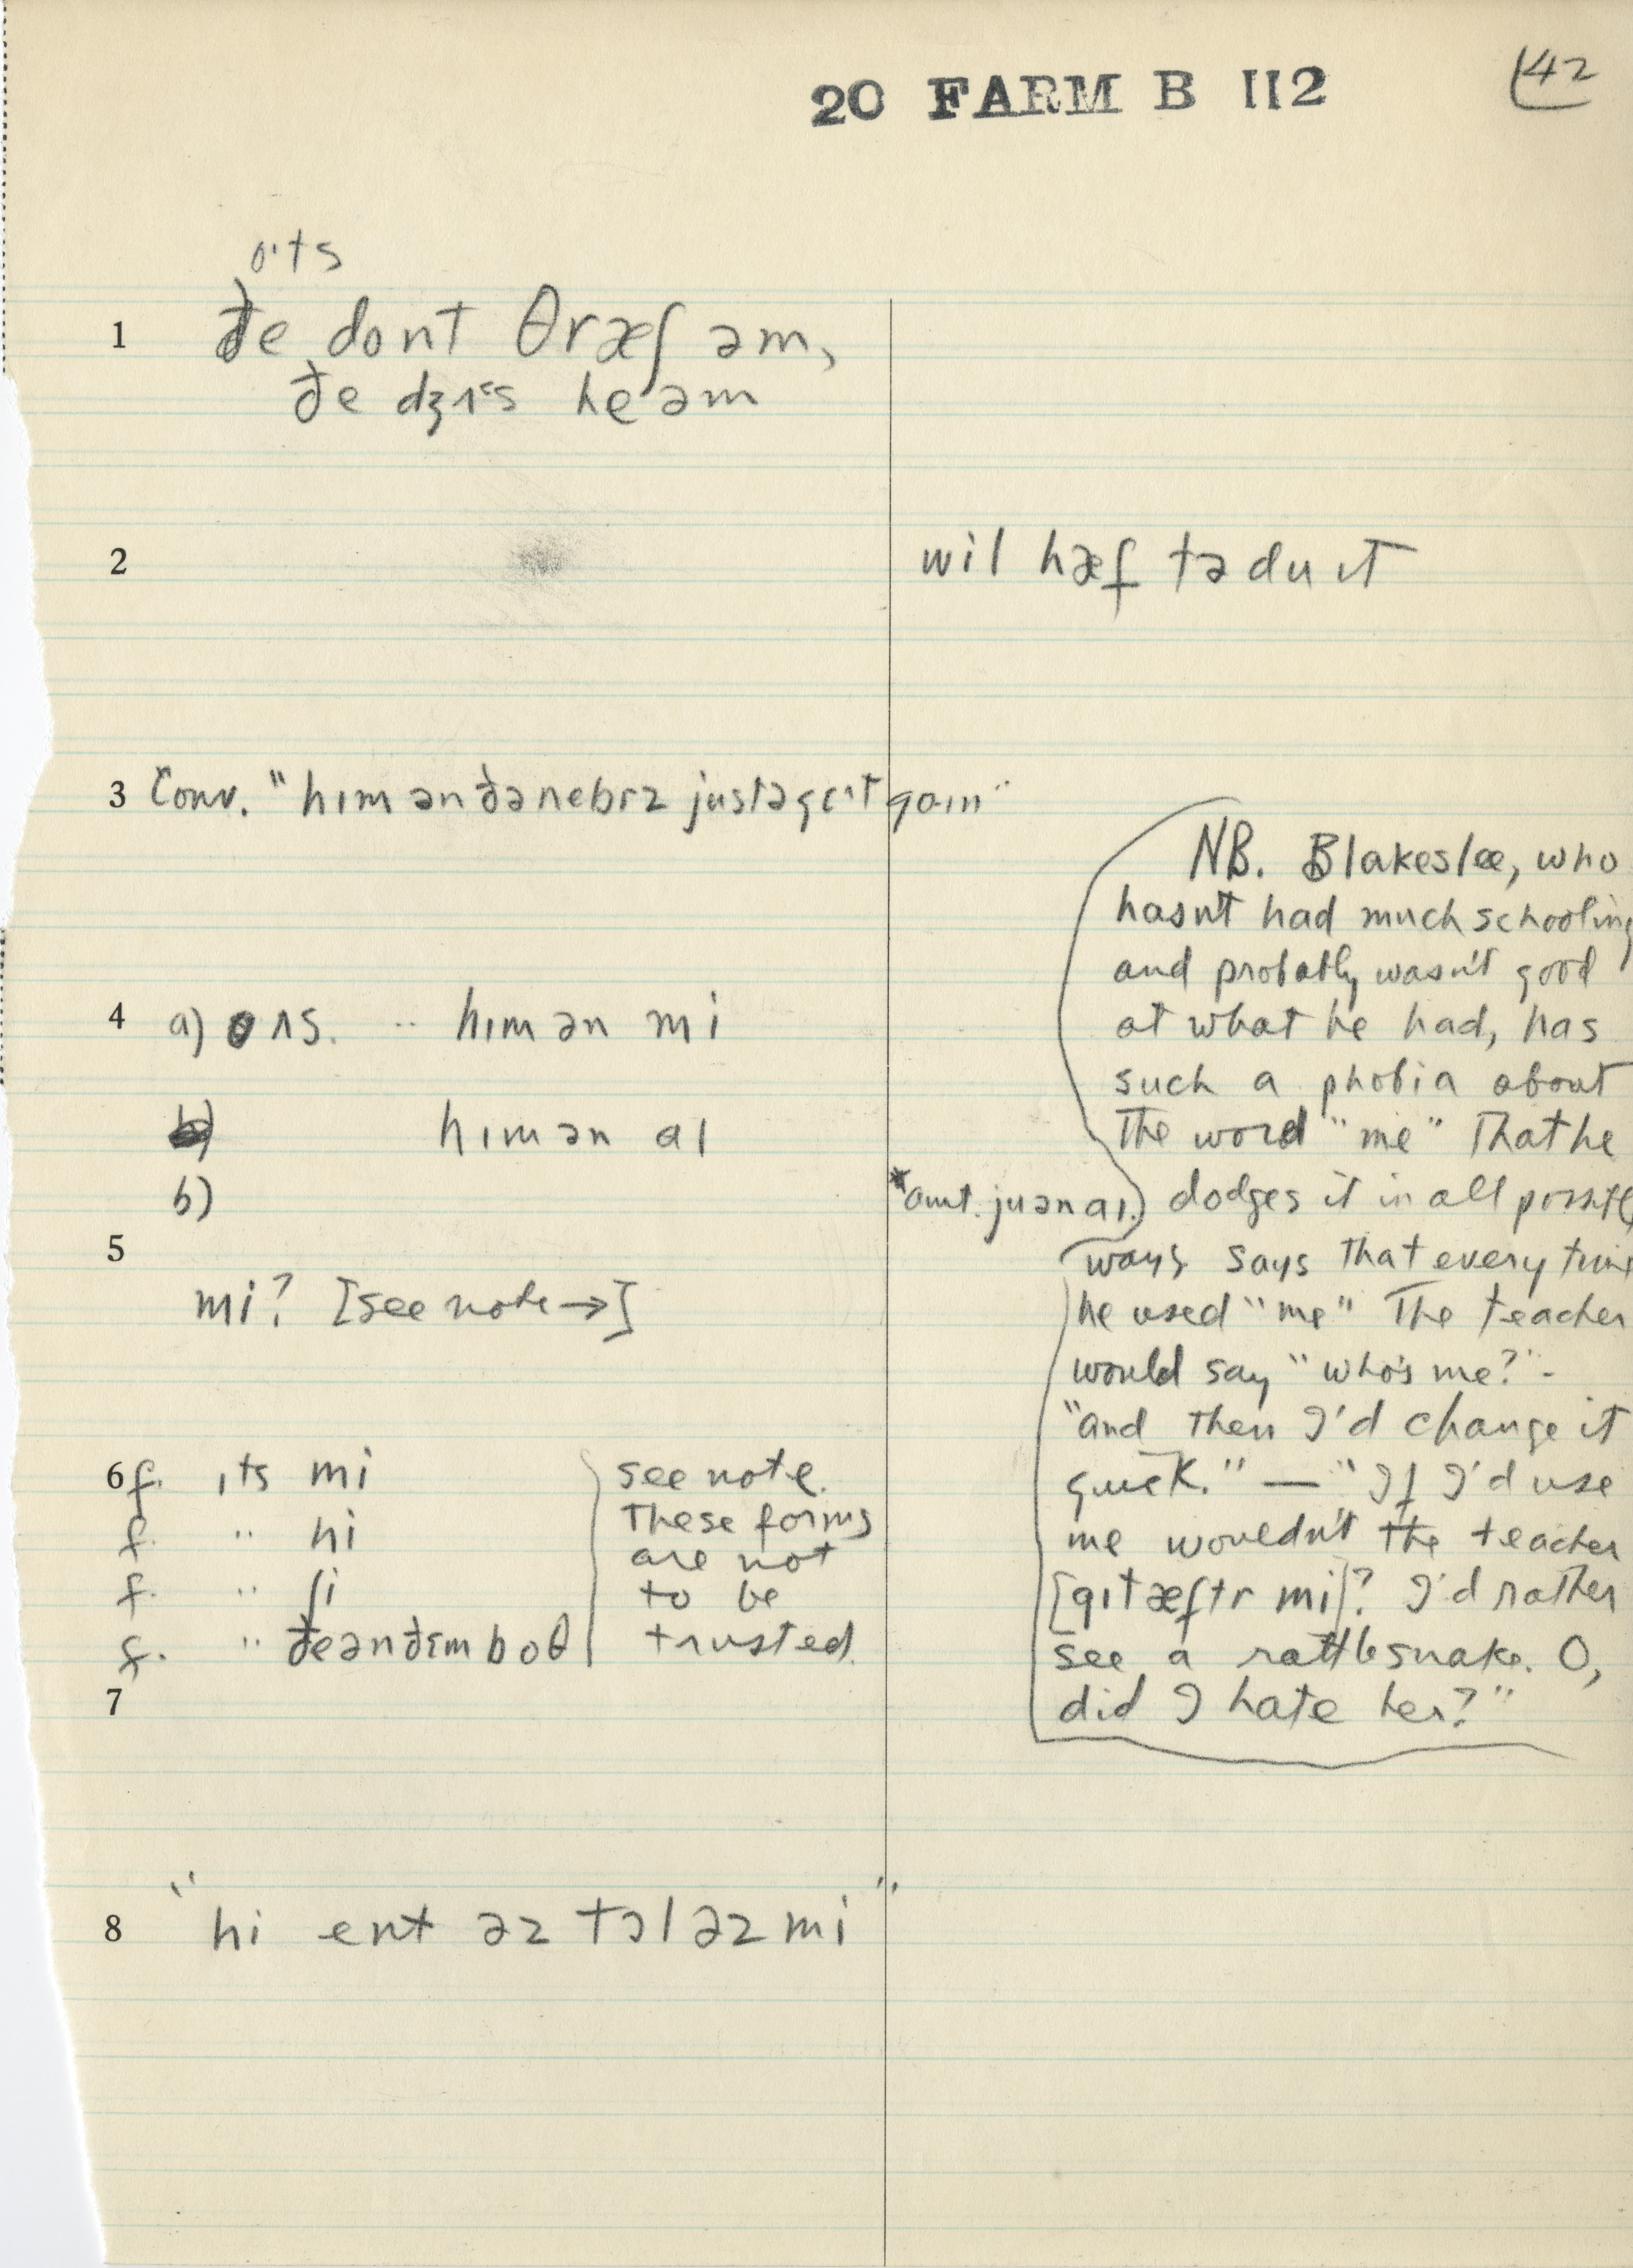 20 FARM B 112
42
o·ts
1 ðe dont θræʃ əm,
ðe dʒɪs he əm
2 wil hæf tə du ɪt
3 Conv. "hɪm ən ðə nebrz justə
4 a) ans. " hɪm ən mi
hɪm ən aɪ
b)
*aunt. ju ən aɪ.)
5
mi? [see note →]
6 f. ɪts mi
f. " hi
f. " ʃi
f. " ðe ən ðɛm boθ
see note.
These forms
are not
to be
trusted.
7
8 "hi ent əz tɔl əz mi"
NB. Blakeslee, who
hasn't had much schooling
and probably wasn't good
at what he had, has
such a phobia about
the word "me" that he
dodges it in all
ways says that every time
he used "me" the teacher
would say "who's me?" -
"and then I'd change it
quick." — "If I'd use
me wouldn't the teacher
[gɪt æftr mi]? I'd rather
see a rattlesnake. O,
did I hate her?"